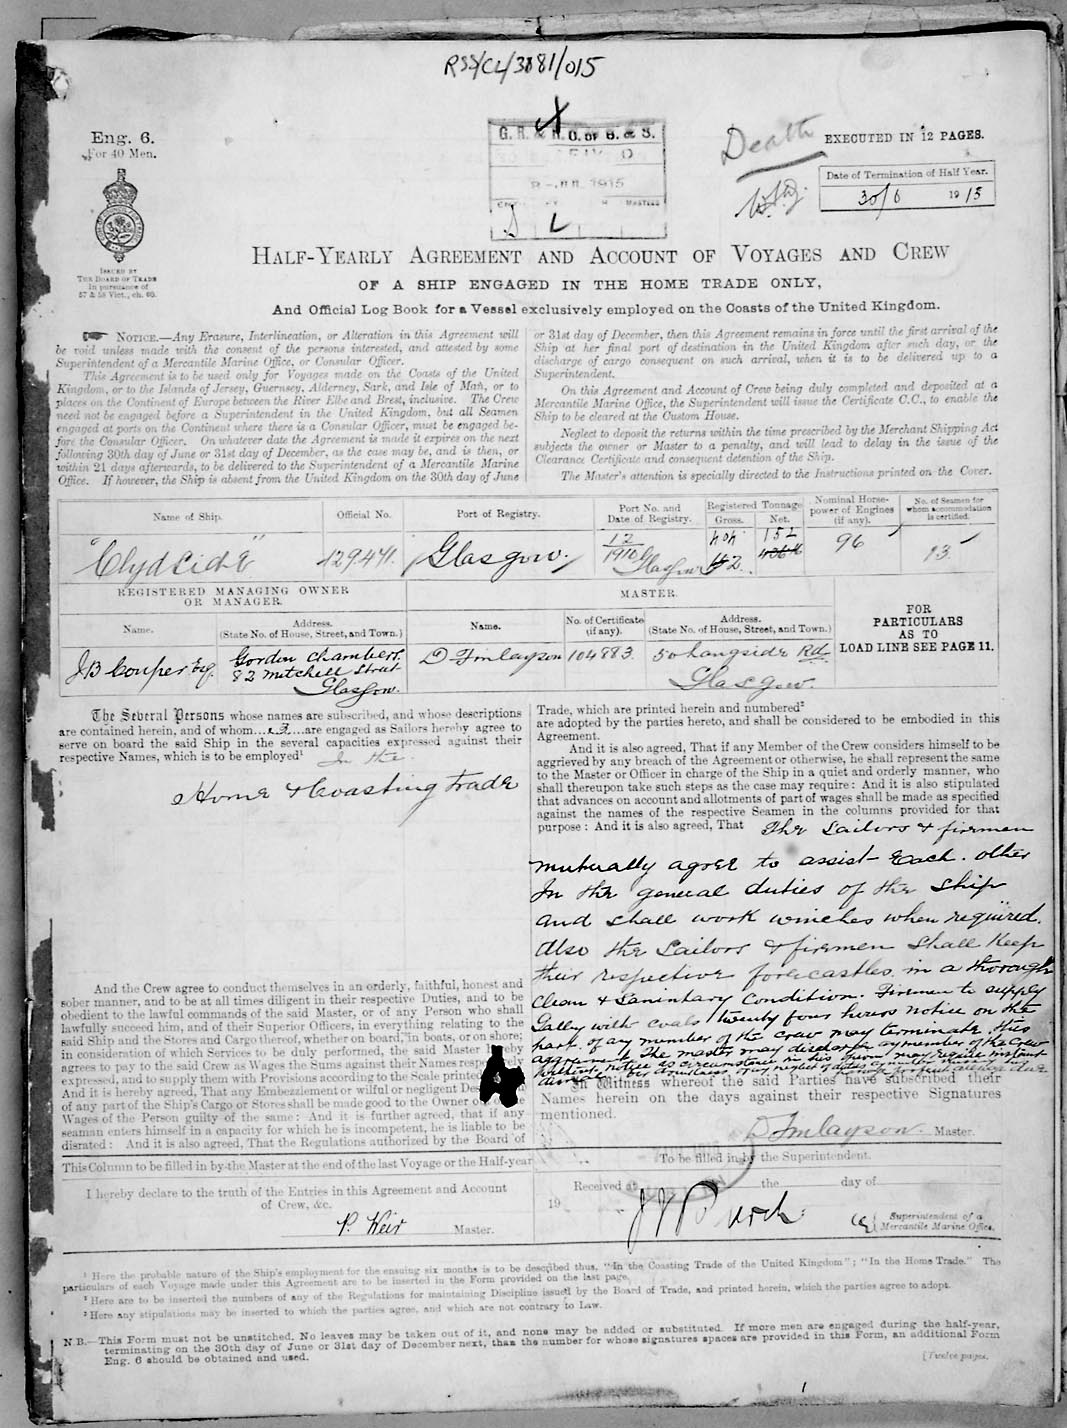 RSS/CL/3881/015
Eng. 6.
For 40 Men.
ISSUED BY
THE BOARD OF TRADE
In pursuance of
57 & 58 Vict., ch. 60.
G. R. & R. O. OF S. & S.
JUL 1915
MASTERS
L
Death
EXECUTED IN 12 PAGES.
Date of Termination of Half Year.
30/6 1915
HALF-YEARLY AGREEMENT AND ACCOUNT OF VOYAGES AND CREW
OF A SHIP ENGAGED IN THE HOME TRADE ONLY,
And Official Log Book for a Vessel exclusively employed on the Coasts of the United Kingdom.
NOTICE.—Any Erasure, Interlineation, or Alteration in this Agreement will
be void unless made with the consent of the persons interested, and attested by some
Superintendent of a Mercantile Marine Office, or Consular Officer.
This Agreement is to be used only for Voyages made on the Coasts of the United
Kingdom, or to the Islands of Jersey, Guernsey, Alderney, Sark, and Isle of Man, or to
places on the Continent of Europe between the River Elbe and Brest, inclusive. The Crew
need not be engaged before a Superintendent in the United Kingdom, but all Seamen
engaged at ports on the Continent where there is a Consular Officer, must be engaged be-
fore the Consular Officer. On whatever date the Agreement is made it expires on the next
following 30th day of June or 31st day of December, as the case may be, and is then, or
within 21 days afterwards, to be delivered to the Superintendent of a Mercantile Marine
Office. If however, the Ship is absent from the United Kingdom on the 30th day of June
or 31st day of December, then this Agreement remains in force until the first arrival of the
Ship at her final port of destination in the United Kingdom after such day, or the
discharge of cargo consequent on such arrival, when it is to be delivered up to a
Superintendent.
On this Agreement and Account of Crew being duly completed and deposited at a
Mercantile Marine Office, the Superintendent will issue the Certificate C.C., to enable the
Ship to be cleared at the Custom House.
Neglect to deposit the returns within the time prescribed by the Merchant Shipping Act
subjects the owner or Master to a penalty, and will lead to delay in the issue of the
Clearance Certificate and consequent detention of the Ship.
The Master's attention is specially directed to the Instructions printed on the Cover.
Name of Ship.
Official No.
Port of Registry.
Port No. and
Date of Registry.
Registered Tonnage
Gross. Net.
Nominal Horse-
power of Engines
(if any).
No. of Seamen for
whom accommodation
is certified.
"Clydeside"
129471.
Glasgow.
12
1910
Glasgow
152
96
13.
REGISTERED MANAGING OWNER
OR MANAGER.
MASTER.
Name.
Address.
(State No. of House, Street, and Town.)
Name.
No. of Certificate
(if any).
Address.
(State No. of House, Street, and Town.)
FOR
PARTICULARS
AS TO
LOAD LINE SEE PAGE 11.
J B Couper Esq.
Gordon Chambers.
82 Mitchell Street
Glasgow.
D Finlayson
104883.
50 Langside Rd
Glasgow.
The Several Persons whose names are subscribed, and whose descriptions
are contained herein, and of whom... ...are engaged as Sailors hereby agree to
serve on board the said Ship in the several capacities expressed against their
respective Names, which is to be employed¹ In the
Home & Coasting trade
And the Crew agree to conduct themselves in an orderly, faithful, honest and
sober manner, and to be at all times diligent in their respective Duties, and to be
obedient to the lawful commands of the said Master, or of any Person who shall
lawfully succeed him, and of their Superior Officers, in everything relating to the
said Ship and the Stores and Cargo thereof, whether on board, in boats, or on shore;
in consideration of which Services to be duly performed, the said Master hereby
agrees to pay to the said Crew as Wages the Sums against their Names respectively
expressed, and to supply them with Provisions according to the Scale printed
And it is hereby agreed, That any Embezzlement or wilful or negligent
of any part of the Ship's Cargo or Stores shall be made good to the Owner
Wages of the Person guilty of the same: And it is further agreed, that if any
seaman enters himself in a capacity for which he is incompetent, he is liable to be
disrated: And it is also agreed, That the Regulations authorized by the Board of
Trade, which are printed herein and numbered²
are adopted by the parties hereto, and shall be considered to be embodied in this
Agreement.
And it is also agreed, That if any Member of the Crew considers himself to be
aggrieved by any breach of the Agreement or otherwise, he shall represent the same
to the Master or Officer in charge of the Ship in a quiet and orderly manner, who
shall thereupon take such steps as the case may require: And it is also stipulated
that advances on account and allotments of part of wages shall be made as specified
against the names of the respective Seamen in the columns provided for that
purpose: And it is also agreed, That The Sailors & firemen
mutually agree to assist Each other
In the general duties of the ship
and shall work winches when required.
Also the Sailors & firemen shall keep
their respective forecastles in a thorough
clean & Saninitary Condition. Firemen to supply
Galley with coals twenty four hours notice on the
part of any member of the crew may terminate this
agreement The master may discharge any member of the crew
without notice
In Witness whereof the said Parties have subscribed their
Names herein on the days against their respective Signatures
mentioned.
D Finlayson. Master.
This Column to be filled in by the Master at the end of the last Voyage or the Half-year
I hereby declare to the truth of the Entries in this Agreement and Account
of Crew, &c.
P. Weir Master.
To be filled in by the Superintendent.
Received at the day of
19
Superintendent of a
Mercantile Marine Office.
¹ Here the probable nature of the Ship's employment for the ensuing six months is to be described thus, "In the Coasting Trade of the United Kingdom"; "In the Home Trade." The
particulars of each Voyage made under this Agreement are to be inserted in the Form provided on the last page.
² Here are to be inserted the numbers of any of the Regulations for maintaining Discipline issued by the Board of Trade, and printed herein, which the parties agree to adopt.
³ Here any stipulations may be inserted to which the parties agree, and which are not contrary to Law.
N.B.—This Form must not be unstitched. No leaves may be taken out of it, and none may be added or substituted. If more men are engaged during the half-year,
terminating on the 30th day of June or 31st day of December next, than the number for whose signatures spaces are provided in this Form, an additional Form
Eng. 6 should be obtained and used.
[Twelve pages.